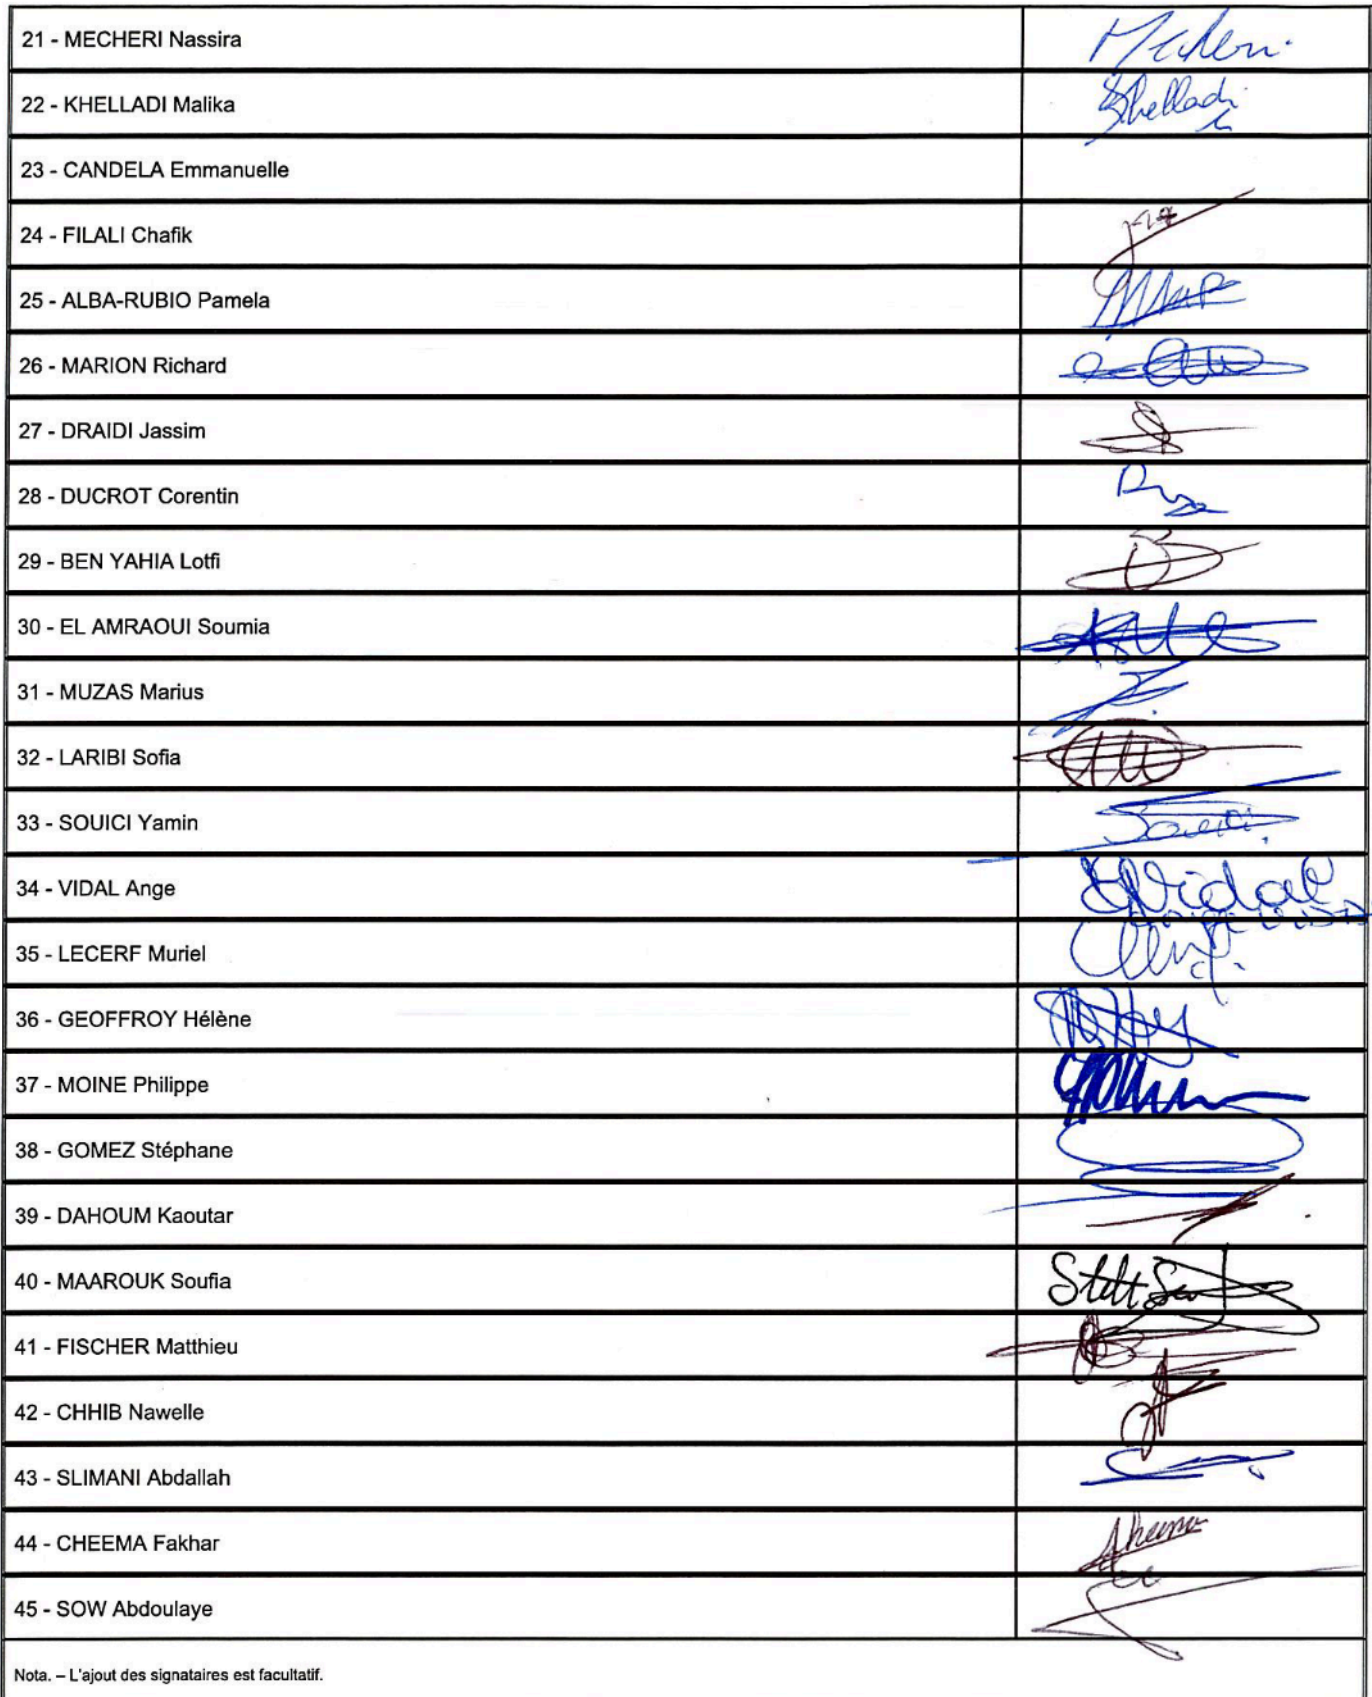 21 - MECHERI Nassira
22 - KHELLADI Malika Khelladi
23 - CANDELA Emmanuelle
24 - FILALI Chafik
25 - ALBA-RUBIO Pamela
26 - MARION Richard
27 - DRAIDI Jassim
28 - DUCROT Corentin
29 - BEN YAHIA Lotfi
30 - EL AMRAOUI Soumia
31 - MUZAS Marius
32 - LARIBI Sofia
33 - SOUICI Yamin
34 - VIDAL Ange Vidal
35 - LECERF Muriel
36 - GEOFFROY Hélène
37 - MOINE Philippe
38 - GOMEZ Stéphane
39 - DAHOUM Kaoutar
40 - MAAROUK Soufia
41 - FISCHER Matthieu
42 - CHHIB Nawelle
43 - SLIMANI Abdallah
44 - CHEEMA Fakhar
45 - SOW Abdoulaye
Nota. – L'ajout des signataires est facultatif.